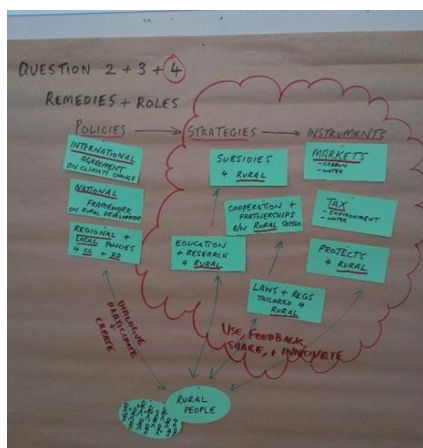 QUESTION 2 + 3 + 4
REMEDIES + ROLES
POLICIES → STRATEGIES → INSTRUMENTS
INTERNATIONAL
AGREEMENT
ON CLIMATE CHANGE
NATIONAL
FRAMEWORK
ON RURAL DEVELOPMENT
REGIONAL +
LOCAL POLICIES
4 CC + RD
SUBSIDIES
4 RURAL
COOPERATION +
PARTNERSHIPS
B/W RURAL SECTOR
EDUCATION
+ RESEARCH
4 RURAL
LAWS + REGS
TAILORED 4
RURAL
MARKETS
- CARBON
- WATER
TAX
- ENVIRONMENT
- WATER
PROJECTS
4 RURAL
DIALOGUE
PARTICIPATE
+
CREATE
USE, FEEDBACK,
SHARE, + INNOVATE
RURAL
PEOPLE